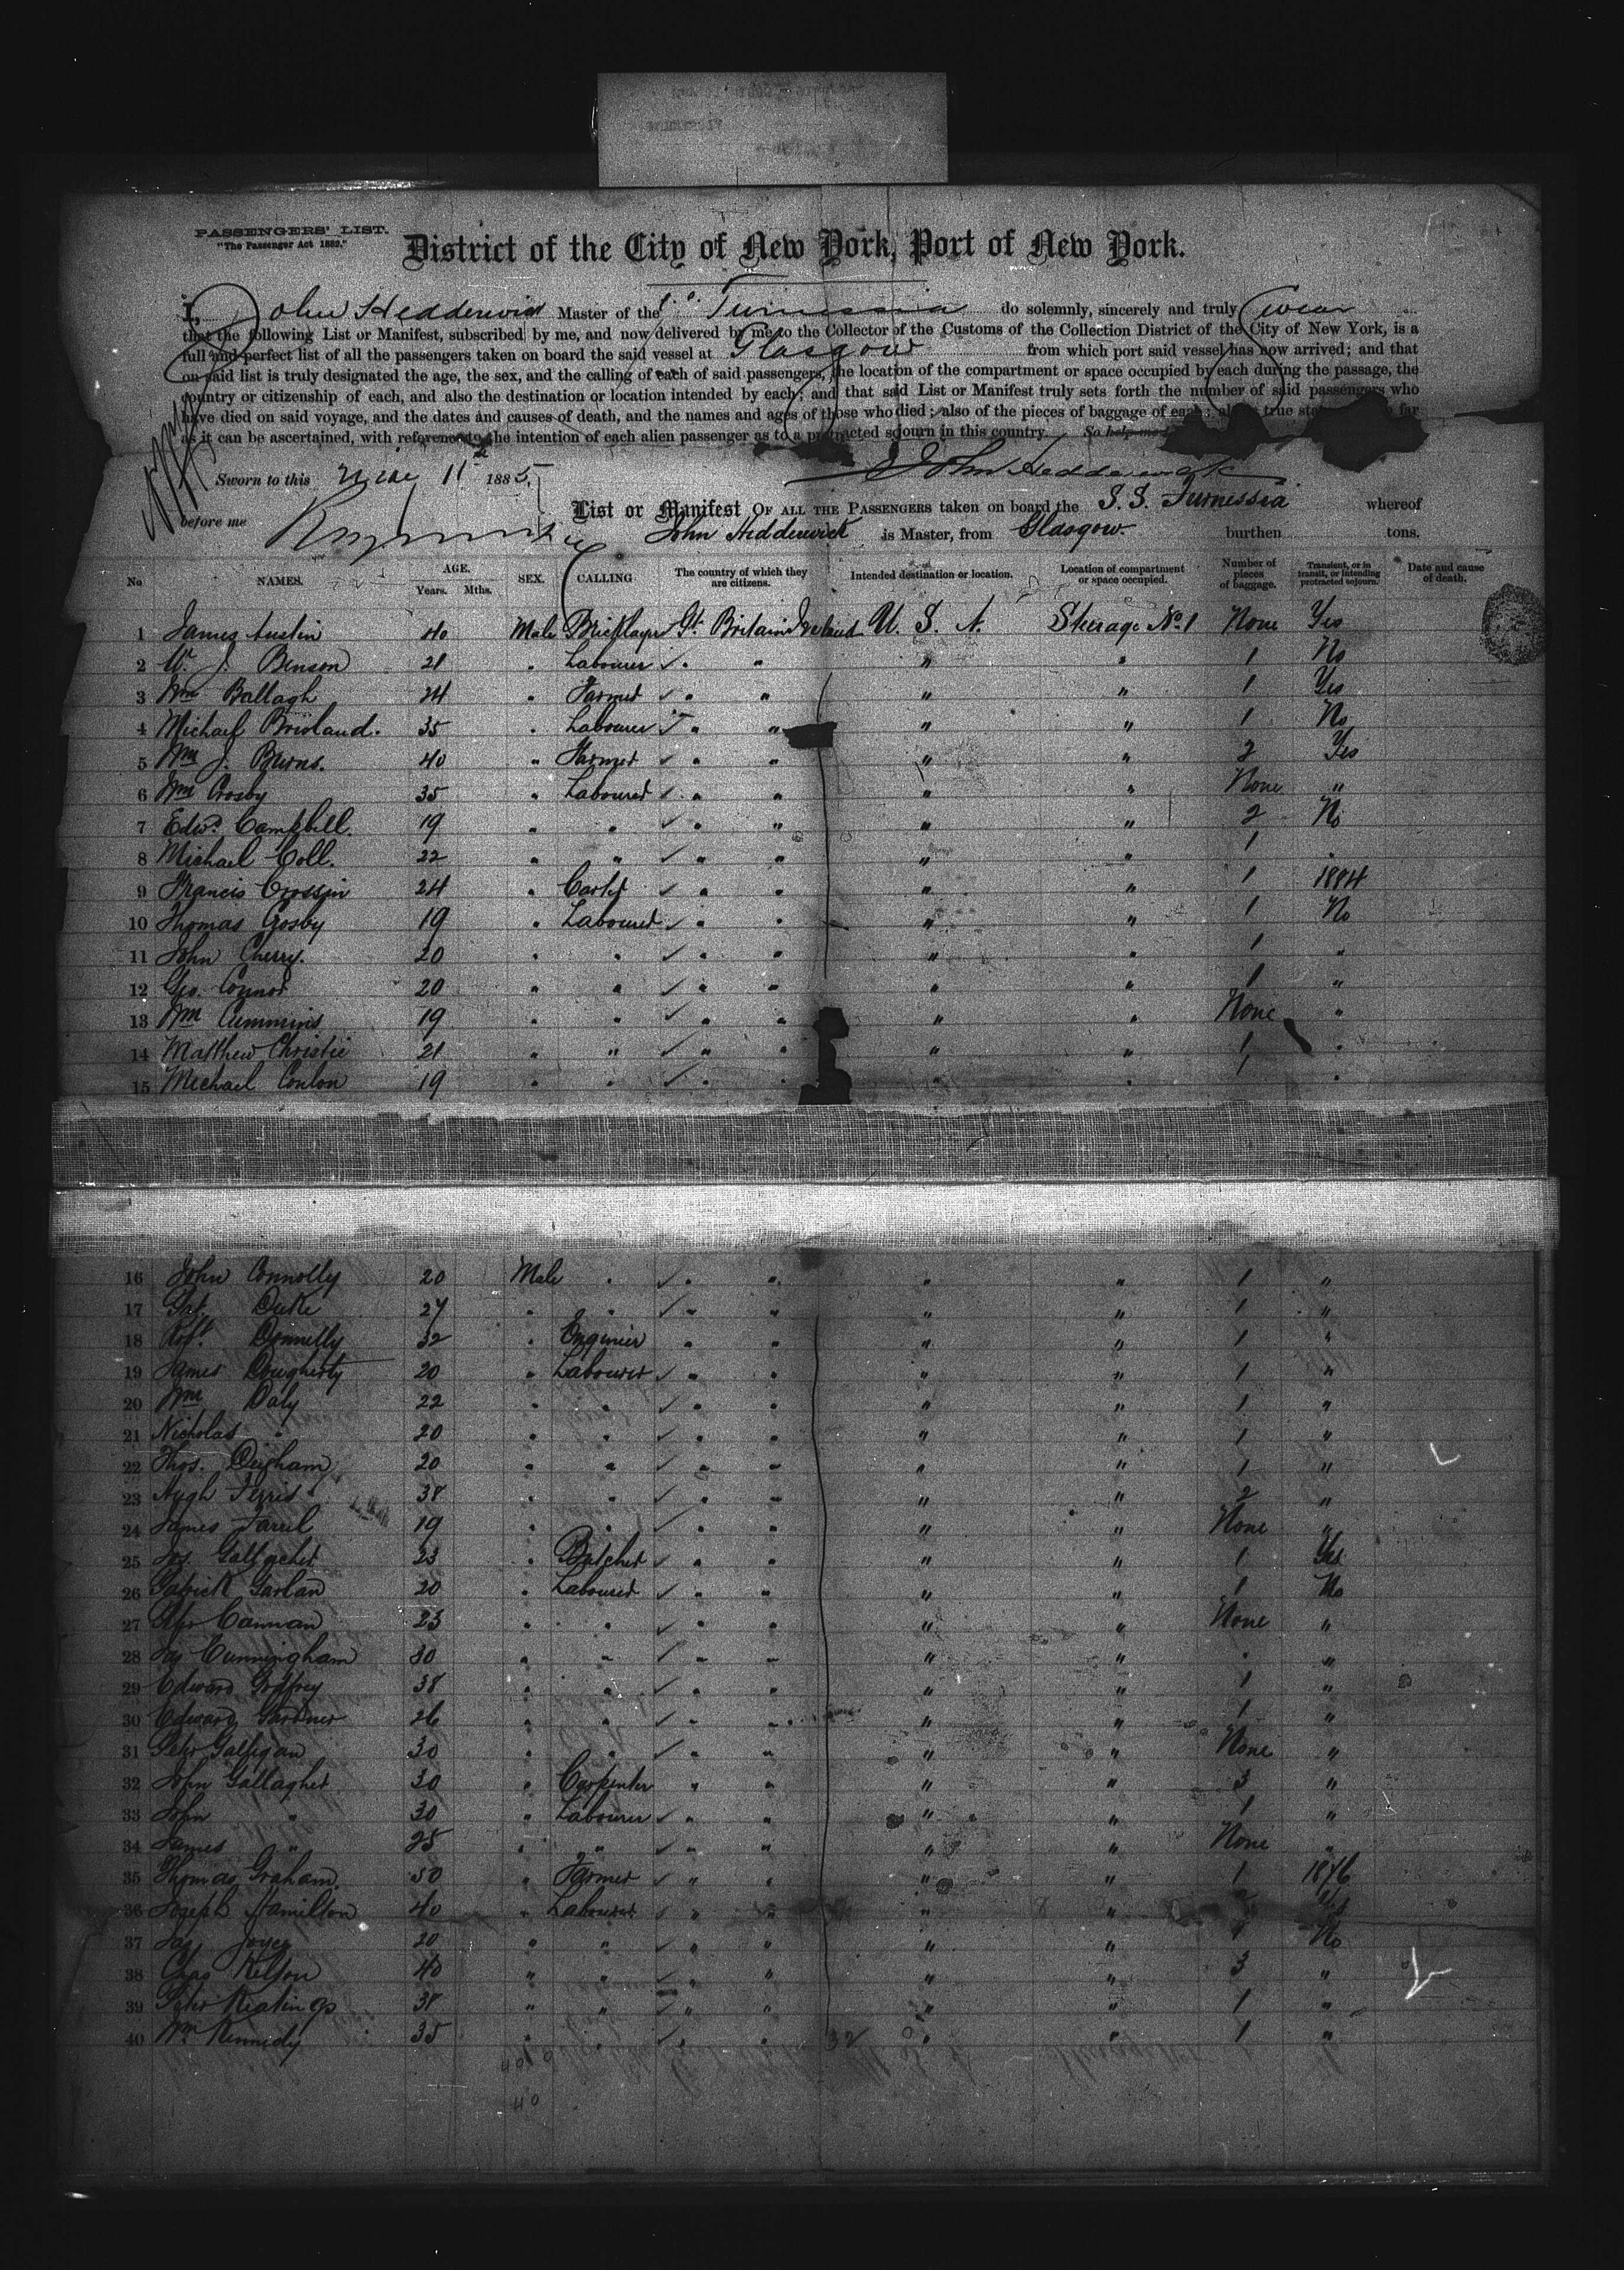 PASSENGERS' LIST.
"The Passenger Act 1882."
District of the City of New York, Port of New York.
I, John Hedderwick Master of the S.S. Furnessia do solemnly, sincerely and truly swear
that the following List or Manifest, subscribed by me, and now delivered by me to the Collector of the Customs of the Collection District of the City of New York, is a
full and perfect list of all the passengers taken on board the said vessel at Glasgow from which port said vessel has now arrived; and that
on said list is truly designated the age, the sex, and the calling of each of said passengers, the location of the compartment or space occupied by each during the passage, the
country or citizenship of each, and also the destination or location intended by each; and that said List or Manifest truly sets forth the number of said passengers who
have died on said voyage, and the dates and causes of death, and the names and ages of those who died; also of the pieces of baggage of each; also a true far
as it can be ascertained, with reference to the intention of each alien passenger as to a protracted sojourn in this country. So help me
Sworn to this 11 1885,
John Hedderwick
before me
List or Manifest OF ALL THE PASSENGERS taken on board the S. S. Furnessia whereof
John Hedderwick is Master, from Glasgow. burthen tons.
No NAMES. AGE. Years. Mths. SEX. CALLING The country of which they are citizens. Intended destination or location. Location of compartment or space occupied. Number of pieces of baggage. Transient, or in transit, or intending protracted sojourn. Date and cause of death.
1 James Austin 40 Male Bricklayer Gt. Britain Ireland U. S. A. Steerage No. 1 None Yes
2 W. J. Benson 21 " Labourer " " " " 1 No
3 Wm Ballagh 24 " Farmer " " " " 1 Yes
4 Michael 35 " Labourer " " " " 1 No
5 Wm J. Burns. 40 " Farmer " " " " 2 Yes
6 Wm Crosby 35 " Labourer " " " " None "
7 Edwd. Campbell. 19 " " " " " " 2 No
8 Michael Coll. 22 " " " " " " 1 "
9 Francis Crossin 24 " Carter " " " " 1 1884
10 Thomas Crosby 19 " Labourer " " " " 1 No
11 John Cherry. 20 " " " " " " 1 "
12 Geo. Connor 20 " " " " " " 1 "
13 Wm Cummins 19 " " " " " " None "
14 Matthew Christie 21 " " " " " " 1 "
15 Michael Conlon 19 " " " " " " 1 "
16 John Connolly 20 Male " " " " " 1 "
17 Pat. Duke 27 " " " " " " 1 "
18 Robt. Donnelly 32 " Engineer " " " " 1 "
19 James Dougherty 20 " Labourer " " " " 1 "
20 Wm Daly 22 " " " " " " 1 "
21 Nicholas " 20 " " " " " " 1 "
22 Thos. Deigham 20 " " " " " " 1 "
23 Hugh Ferris 38 " " " " " " 2 "
24 James Farrel 19 " " " " " " None "
25 Jas. Gallacher 23 " Butcher " " " " 1 Yes
26 Patrick Garlan 20 " Labourer " " " " 1 No
27 Peter Cannan 23 " " " " " " None "
28 Jas Cunningham 30 " " " " " " " "
29 Edward Godfrey 38 " " " " " " 1 "
30 Edward Gardner 26 " " " " " " 1 "
31 Peter Galligan 30 " " " " " " None "
32 John Gallagher 30 " Carpenter " " " " 3 "
33 John " 30 " Labourer " " " " 1 "
34 James " 25 " " " " " " None "
35 Thomas Graham. 50 " Farmer " " " " 1 1876
36 Joseph Hamilton 40 " Labourer " " " " 2 Yes
37 Jas Joyce 20 " " " " " " 1 No
38 Chas Kelson 40 " " " " " " 3 "
39 Peter Keatings 38 " " " " " " 1 "
40 Wm Kennedy 35 " " " " " " 1 "
32
40
40